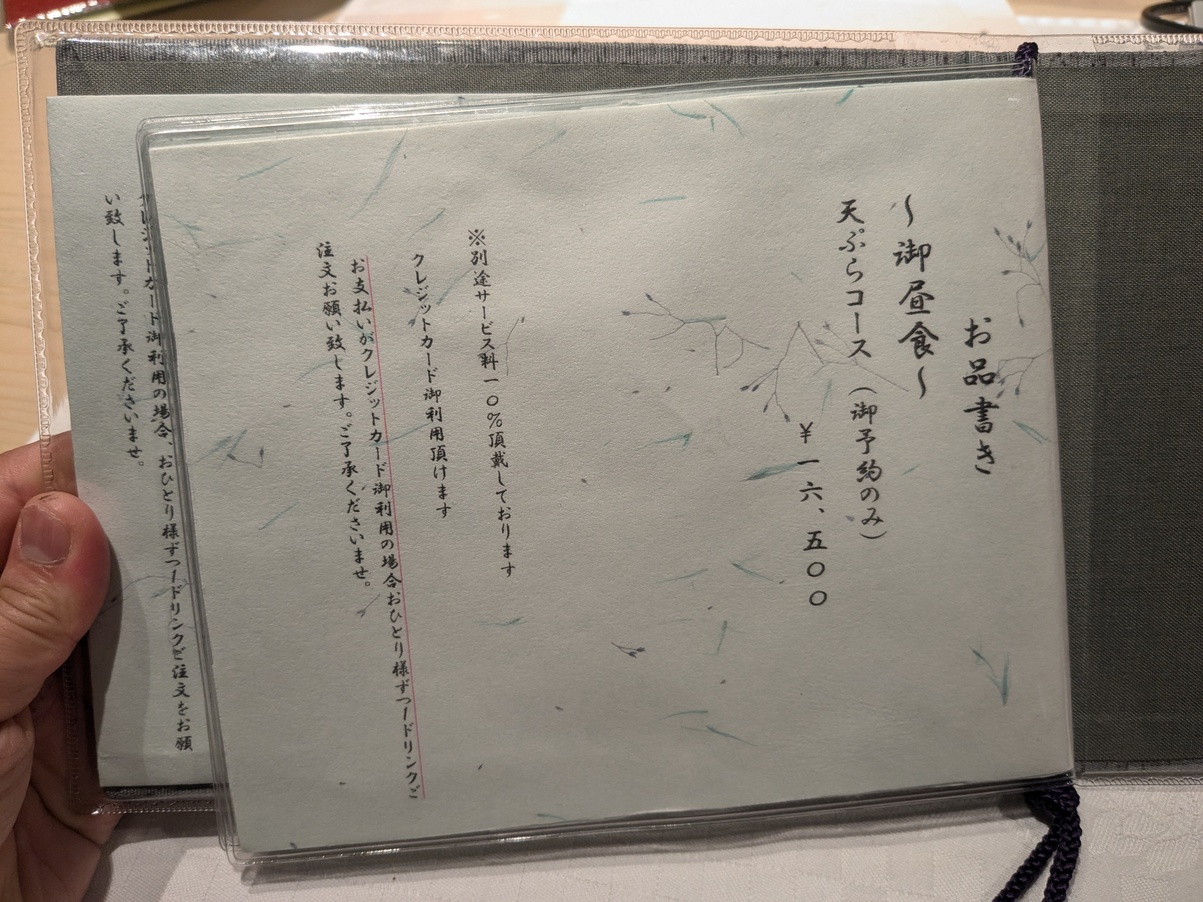 お品書き
～御昼食～
天ぷらコース（御予約のみ）
￥一六、五〇〇
※別途サービス料一〇％頂戴しております
クレジットカード御利用頂けます
お支払いがクレジットカード御利用の場合おひとり様ずつ一ドリンクご
注文お願い致します。ご了承くださいませ。
クレジットカード御利用の場合、おひとり様ずつ一ドリンクご注文をお願
い致します。ご了承くださいませ。